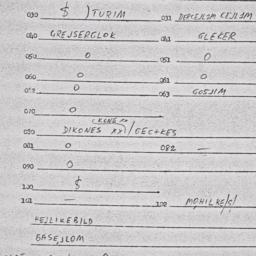 030 $ ) TURIM 031 DEPCEJLOM CEJLOM
040 GREJSERGLOK 041 GLEKER
050 0 051 0
060 0 061 0
0 063 GOSJIM
070 0
080 DIKONES XXI/GEC+KES
081 0 082 —
090 0
100 $
101 — 102 MOHILKE/C/
KEJLIKEBILD
GASEJLOM